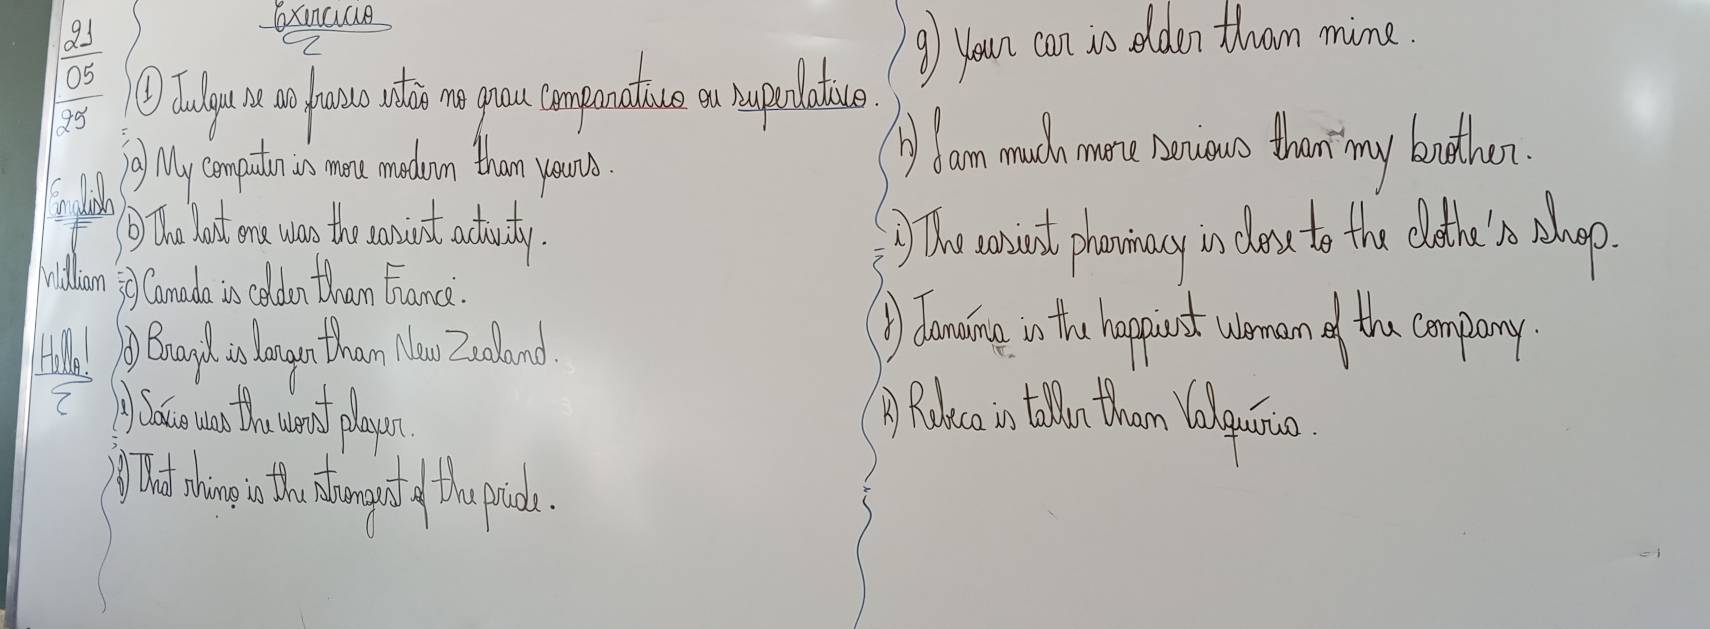 21
05
25
English
William
Hello!
Exercício
1) Julgue se as frases estão no grau comparativo ou superlativo.
a) My computer is more modern than yours.
b) The last one was the easiest activity.
c) Canada is colder than France.
d) Brazil is larger than New Zealand.
e) Sávio was the worst player.
f) That rhino is the strongest of the pride.
g) Your car is older than mine.
h) I am much more serious than my brother.
i) The easiest pharmacy is close to the clothe's shop.
j) Janaína is the happiest woman of the company.
k) Rebeca is taller than Valquíria.